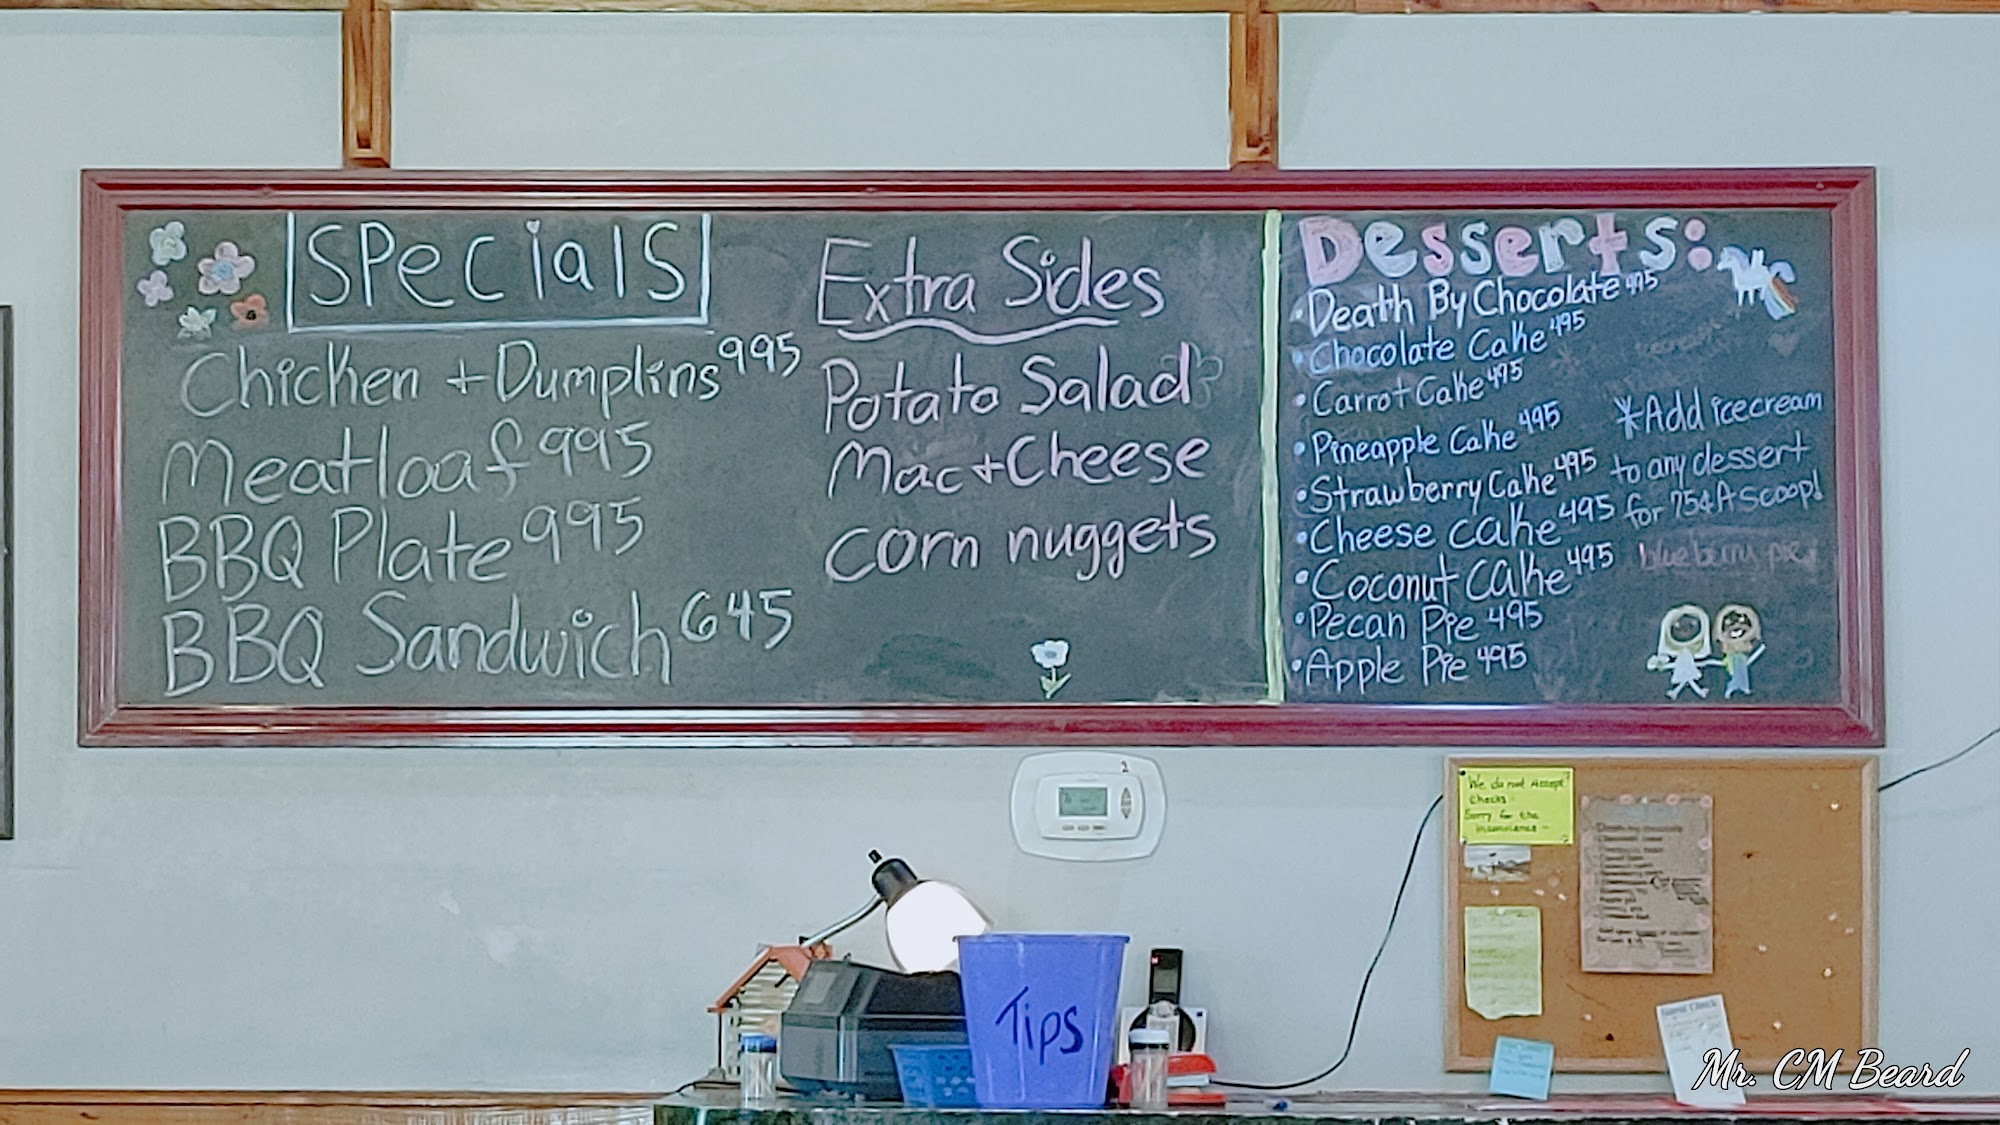 SPecialS
Chicken + Dumplins 995
Meatloaf 995
BBQ Plate 995
BBQ Sandwich 645
Extra Sides
Potato Salad
Mac + Cheese
corn nuggets
Desserts:
• Death By Chocolate 495
• Chocolate Cake 495
• Carrot Cake 495
• Pineapple Cake 495
• Strawberry Cake 495
• Cheese cake 495
• Coconut cake 495
• Pecan Pie 495
• Apple Pie 495
*Add icecream
to any dessert
for 75¢ A scoop!
blueberry pie
2
We do not Accept
checks
Sorry for the
Tips
Mr. CM Beard